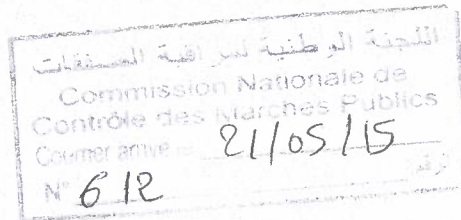 اللجنة الوطنية لمراقبة الصفقات
Commission Nationale de
Contrôle des Marchés Publics
Courrier arrivé 21/05/15
N° 612 رقم